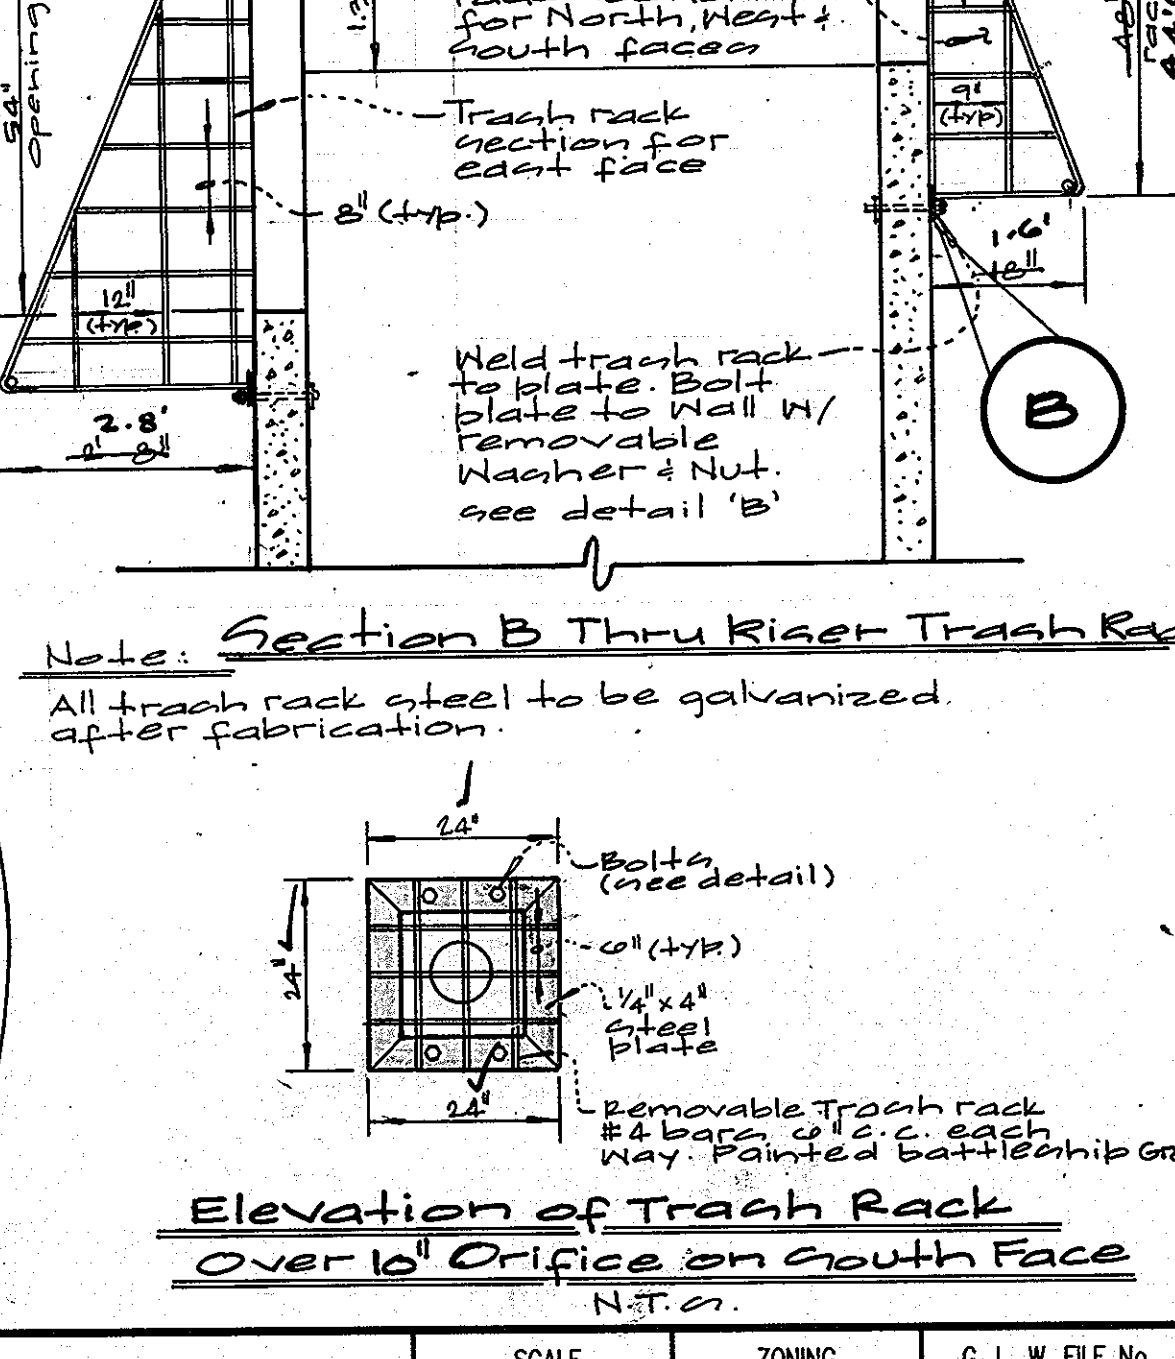 for North, West &
South faces
54"
Opening
1.3
Trash rack
section for
east face
8" (typ.)
9"
(typ)
48"
1.6'
18"
12"
(typ.)
2.8'
2' 8"
Weld trash rack
to plate. Bolt
plate to Wall W/
removable
Washer & Nut.
see detail 'B'
B
Section B Thru Riser Trash Rac
Note:
All trash rack steel to be galvanized
after fabrication.
24"
Bolts
(see detail)
24"
6" (typ.)
1/4" x 4"
Steel
plate
24"
Removable Trash rack
#4 bars 6" c.c. each
Way. Painted battleship Gr
Elevation of Trash Rack
Over 10" Orifice on South Face
N.T.S.
SCALE
ZONING
G. L. W. FILE No.